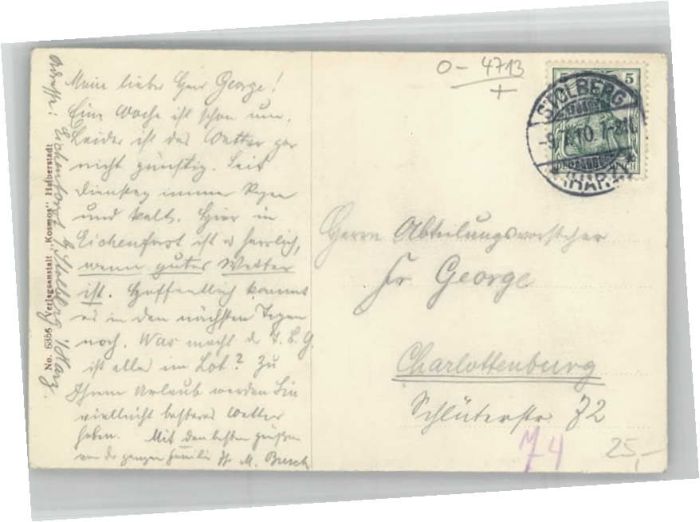 Mein lieber Herr George!
Eine Woche ist schon um.
Leider ist das Wetter gar
nicht günstig. Seit
Dienstag immer Regen
und kalt. Hier in
Eichenforst ist es herrlich,
wenn gutes Wetter
ist. Hoffentlich kommt
es in den nächsten Tagen
noch. Was macht d.
ist alle im Lot? Zu
Ihrem Urlaub werden Sie
vielleicht besseres Wetter
haben. Mit den besten Grüßen
von der ganzen Familie Ihr M. Busch
Adresse: Eichenforst b/Stolberg /Harz
No. 6356 Verlagsanstalt „Kosmos" Halberstadt
O - 4713
+
5 5
STOLBERG
(HARZ)
Herrn Abteilungsvorsteher
Fr George
Charlottenburg
Schlüterstr 72
74
25,-